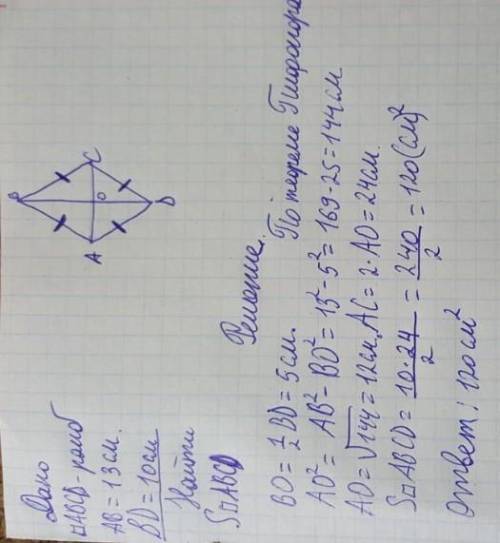 Дано
□ABCD-ромб
AB = 13см.
BD = 10см
Найти
S□ABCD
B
A
O
C
D
Решение.
BO = 1/2 BD = 5см. По теореме Пифагора
AO² = AB² - BO² = 13² - 5² = 169 - 25 = 144см
AO = √144 = 12см, AC = 2·AO = 24см.
S□ABCD = 10·24/2 = 240/2 = 120(см)²
Ответ: 120см²